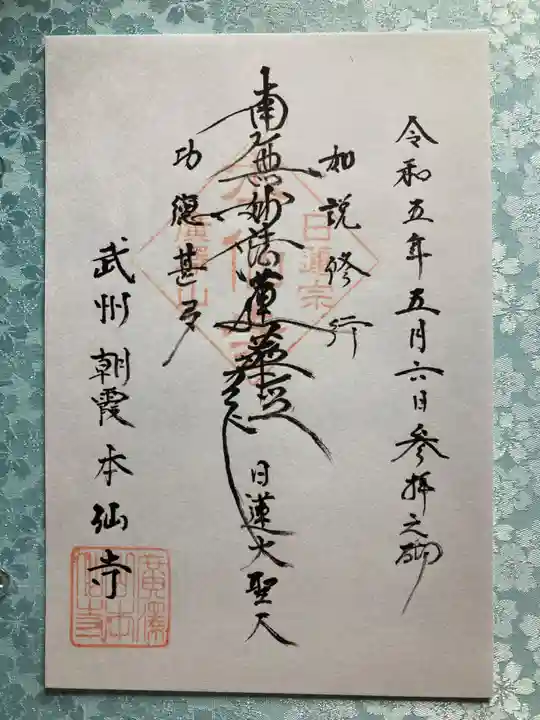 令和五年五月六日参拝之砌
如説修行
南無妙法蓮華経
日蓮大聖人
功徳甚多
武州朝霞本仙寺
日蓮宗
本仙寺
廣澤山
廣澤山本仙寺